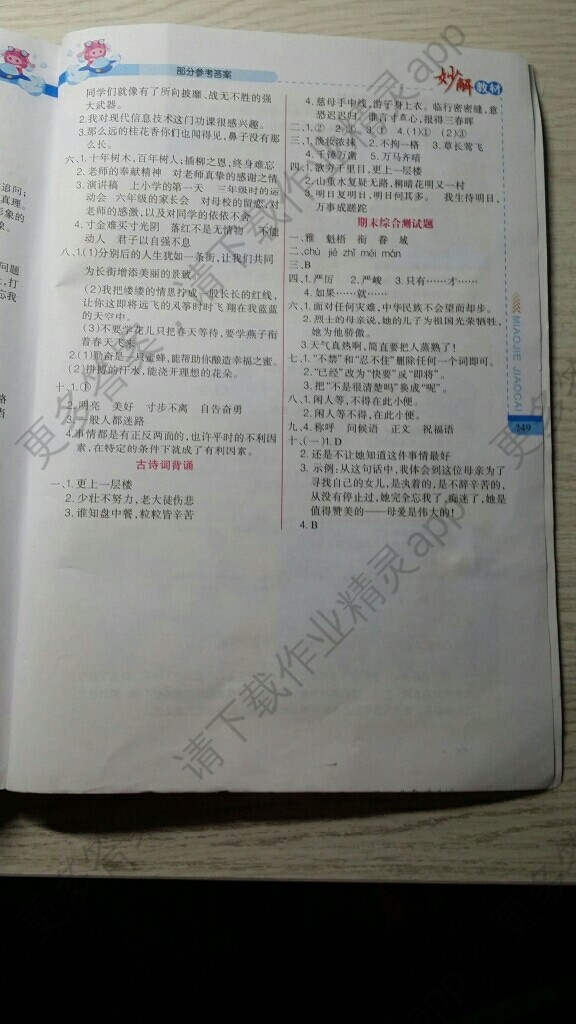 部分参考答案
妙解教材
同学们就像有了所向披靡、战无不胜的强
大武器。
2.我对现代信息技术这门功课很感兴趣。
3.那么远的桂花香你们也闻得见,鼻子没有那
么长。
六、1.十年树木,百年树人;插柳之恩,终身难忘
2.老师的奉献精神 对老师真挚的感谢之情
3.演讲稿 上小学的第一天 三年级时的运
动会 六年级的家长会 对母校的留恋,对
老师的感激,以及对同学的依依不舍
4.寸金难买寸光阴 落红不是无情物 不能
动人 君子以自强不息
八、1.(1)分别后的人生犹如一条街,让我们共同
为长街增添美丽的景致。
(2)我把缕缕的情思拧成一股长长的红线,
让你这即将远飞的风筝时时飞翔在我蓝蓝
的天空中。
(3)不要学花儿只把春天等待,要学燕子衔
着春天飞来。
2.(1)勤奋是一只蜜蜂,能帮助你酿造幸福之蜜。
(2)拼搏的汗水,能浇开理想的花朵。
十、1.①
2.明亮 美好 寸步不离 自告奋勇
3.一般人都迷路
4.事情都是有正反两面的,也许平时的不利因
素,在特定的条件下就成了有利因素。
古诗词背诵
一、1.更上一层楼
2.少壮不努力,老大徒伤悲
3.谁知盘中餐,粒粒皆辛苦
4.慈母手中线,游子身上衣。临行密密缝,意
恐迟迟归。谁言寸草心,报得三春晖
二、1.② 2.④ 3.① 4.(1)① (2)③
三、1.淡妆浓抹 2.不拘一格 3.草长莺飞
4.千锤万凿 5.万马齐喑
四、1.欲穷千里目,更上一层楼
2.山重水复疑无路,柳暗花明又一村
3.明日复明日,明日何其多。 我生待明日,
万事成蹉跎
期末综合测试题
一、雅 魁梧 衔 眷 域
二、chù jié zhǐ mèi mán
三、B
四、1.严厉 2.严峻 3.只有……才……
4.如果……就……
六、1.面对任何灾难,中华民族不会望而却步。
2.烈士的母亲说,她的儿子为祖国光荣牺牲,
她为他骄傲。
3.天气真热啊,简直要把人蒸熟了!
七、1.“不禁”和“忍不住”删除任何一个词即可。
2.“已经”改为“快要”或“即将”。
3.把“不是很清楚吗”换成“呢”。
八、1.闲人等,不得在此小便。
2.闲人等不得,在此小便。
九、4.称呼 问候语 正文 祝福语
十、(一)1.D
2.还是不让她知道这件事情最好
3.示例:从这句话中,我体会到这位母亲为了
寻找自己的女儿,是执着的,是不辞辛苦的,
从没有停止过,她完全忘我了,痴迷了,她是
值得赞美的——母爱是伟大的!
4.B
MIAOJIE JIAOCAI
249
追问;
真理。
形象的
问题
,打
忘我
请下载作业精灵app